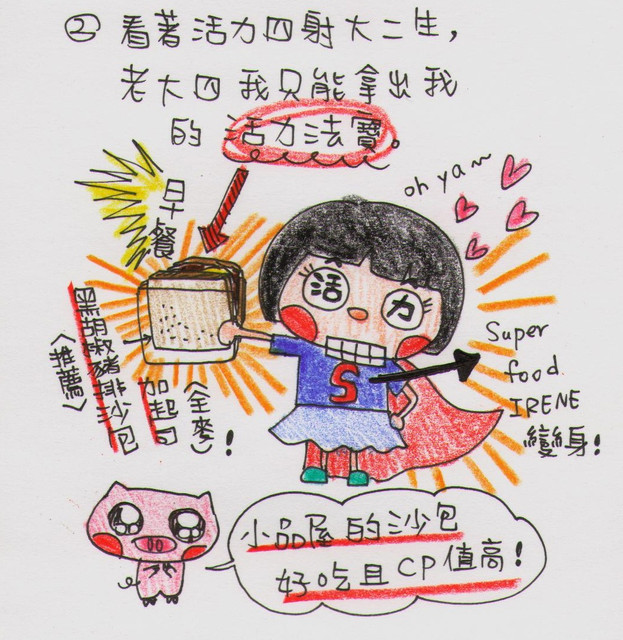 ② 看著活力四射大二生,
老大四我只能拿出我
的活力法寶。
早餐
oh ya~
活 力
S
黑胡椒豬排沙包
(推薦)
加起司
(全麥)!
Super
food
IRENE
變身!
小品屋的沙包
好吃且CP值高!